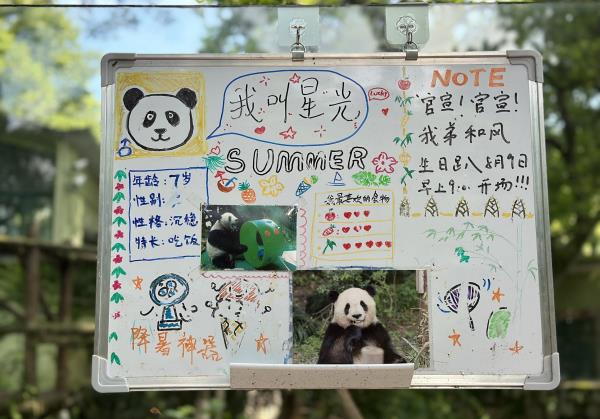 我叫星光
Lucky
SUMMER
年龄：7岁
性别：♂
性格：沉稳
特长：吃饭
我最喜欢的食物
NOTE
官宣！官宣！
我弟和风
生日趴8月9日
早上9:00开抢!!!
降暑神器